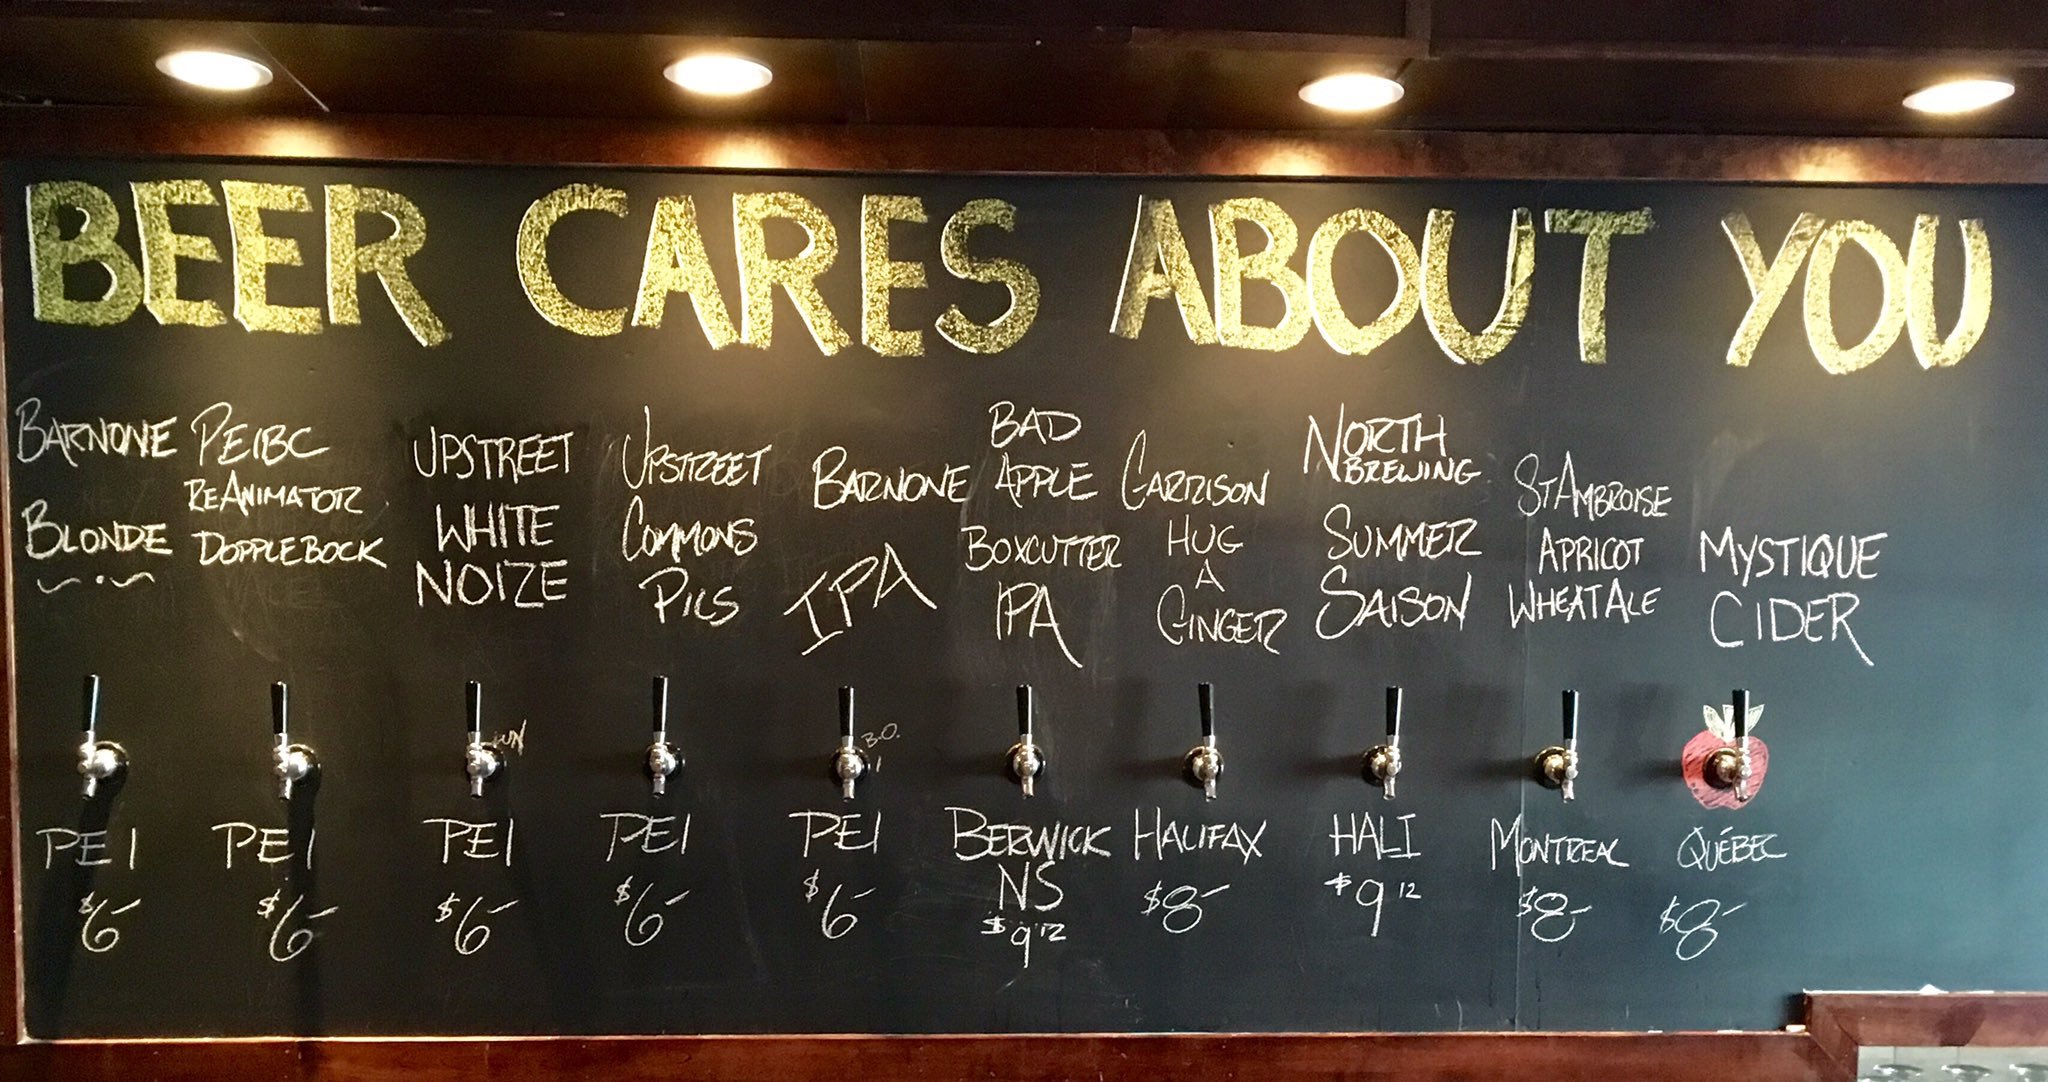 BEER CARES ABOUT YOU
BARNONE
BLONDE
PEIBC
REANIMATOR
DOPPLEBOCK
UPSTREET
WHITE
NOIZE
UPSTREET
COMMONS
PILS
BARNONE
IPA
BAD
APPLE
BOXCUTTER
IPA
GARRISON
HUG
A
GINGER
NORTH
BREWING
SUMMER
SAISON
ST AMBROISE
APRICOT
WHEAT ALE
MYSTIQUE
CIDER
B.O.
PEI
$6-
PEI
$6-
PEI
$6-
PEI
$6-
PEI
$6-
BERWICK
NS
$9 12
HALIFAX
$8-
HALI
$9 12
MONTREAL
$8-
QUÉBEC
$8-